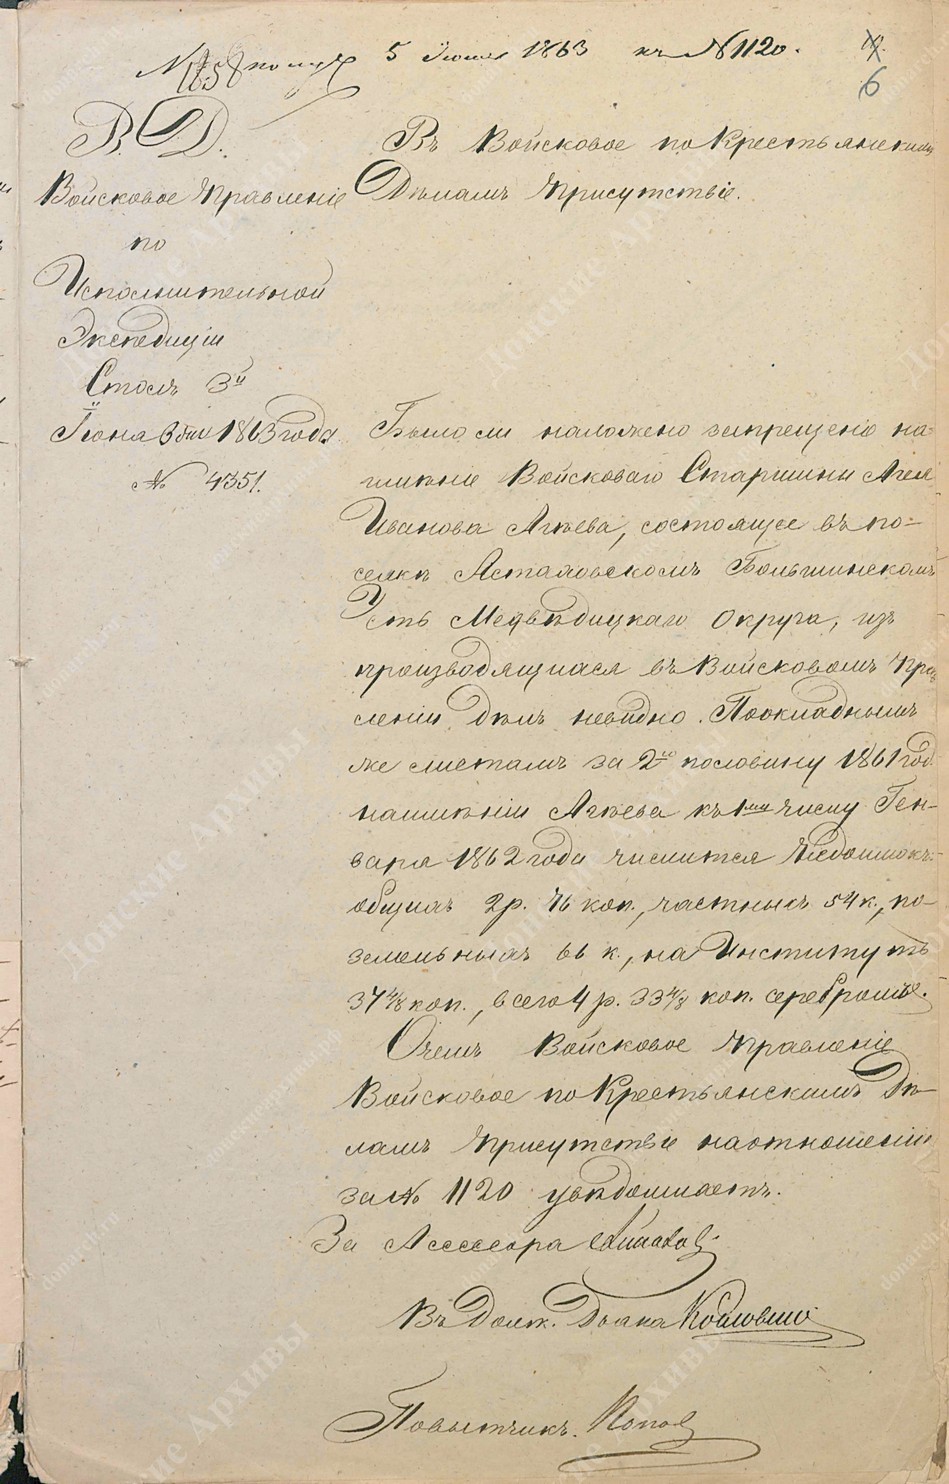 № 1658 получ 5 Июня 1863 къ № 1120.
6
В. Д.
Войсковое Правленіе
по
Исполнительной
Экспедиціи
Столъ 3й
Іюня 3 дня 1863 года
№ 4351.
Въ Войсковое по Крестьянскимъ
Дѣламъ Присутствіе.
Было ли наложено запрещеніе на
имѣніе Войсковаго Старшины
Иванова Агѣева, состоящее въ по=
селкѣ Астаховскомъ Большинскомъ
Усть Медвѣдицкаго Округа, изъ
производящихся въ Войсковомъ Прав
леніи дѣлъ невидно. По окладнымъ
же листамъ за 2ю половину 1861 год
на имѣніи Агѣева къ 1му числу Ген-
варя 1862 года числится Недоимокъ:
общихъ 2 р. 76 коп., частныхъ 54 к., по-
земельныхъ 66 к., на Институтъ
37 4/8 коп., всего 4 р. 33 4/8 коп. серебромъ.
О чемъ Войсковое Правленіе
Войсковое по Крестьянскимъ Дѣ-
ламъ Присутствіе на отношеніи
за № 1120 увѣдомляетъ.
За Ассесора
Въ Долж. Дьяка
Повытчикъ. Попов